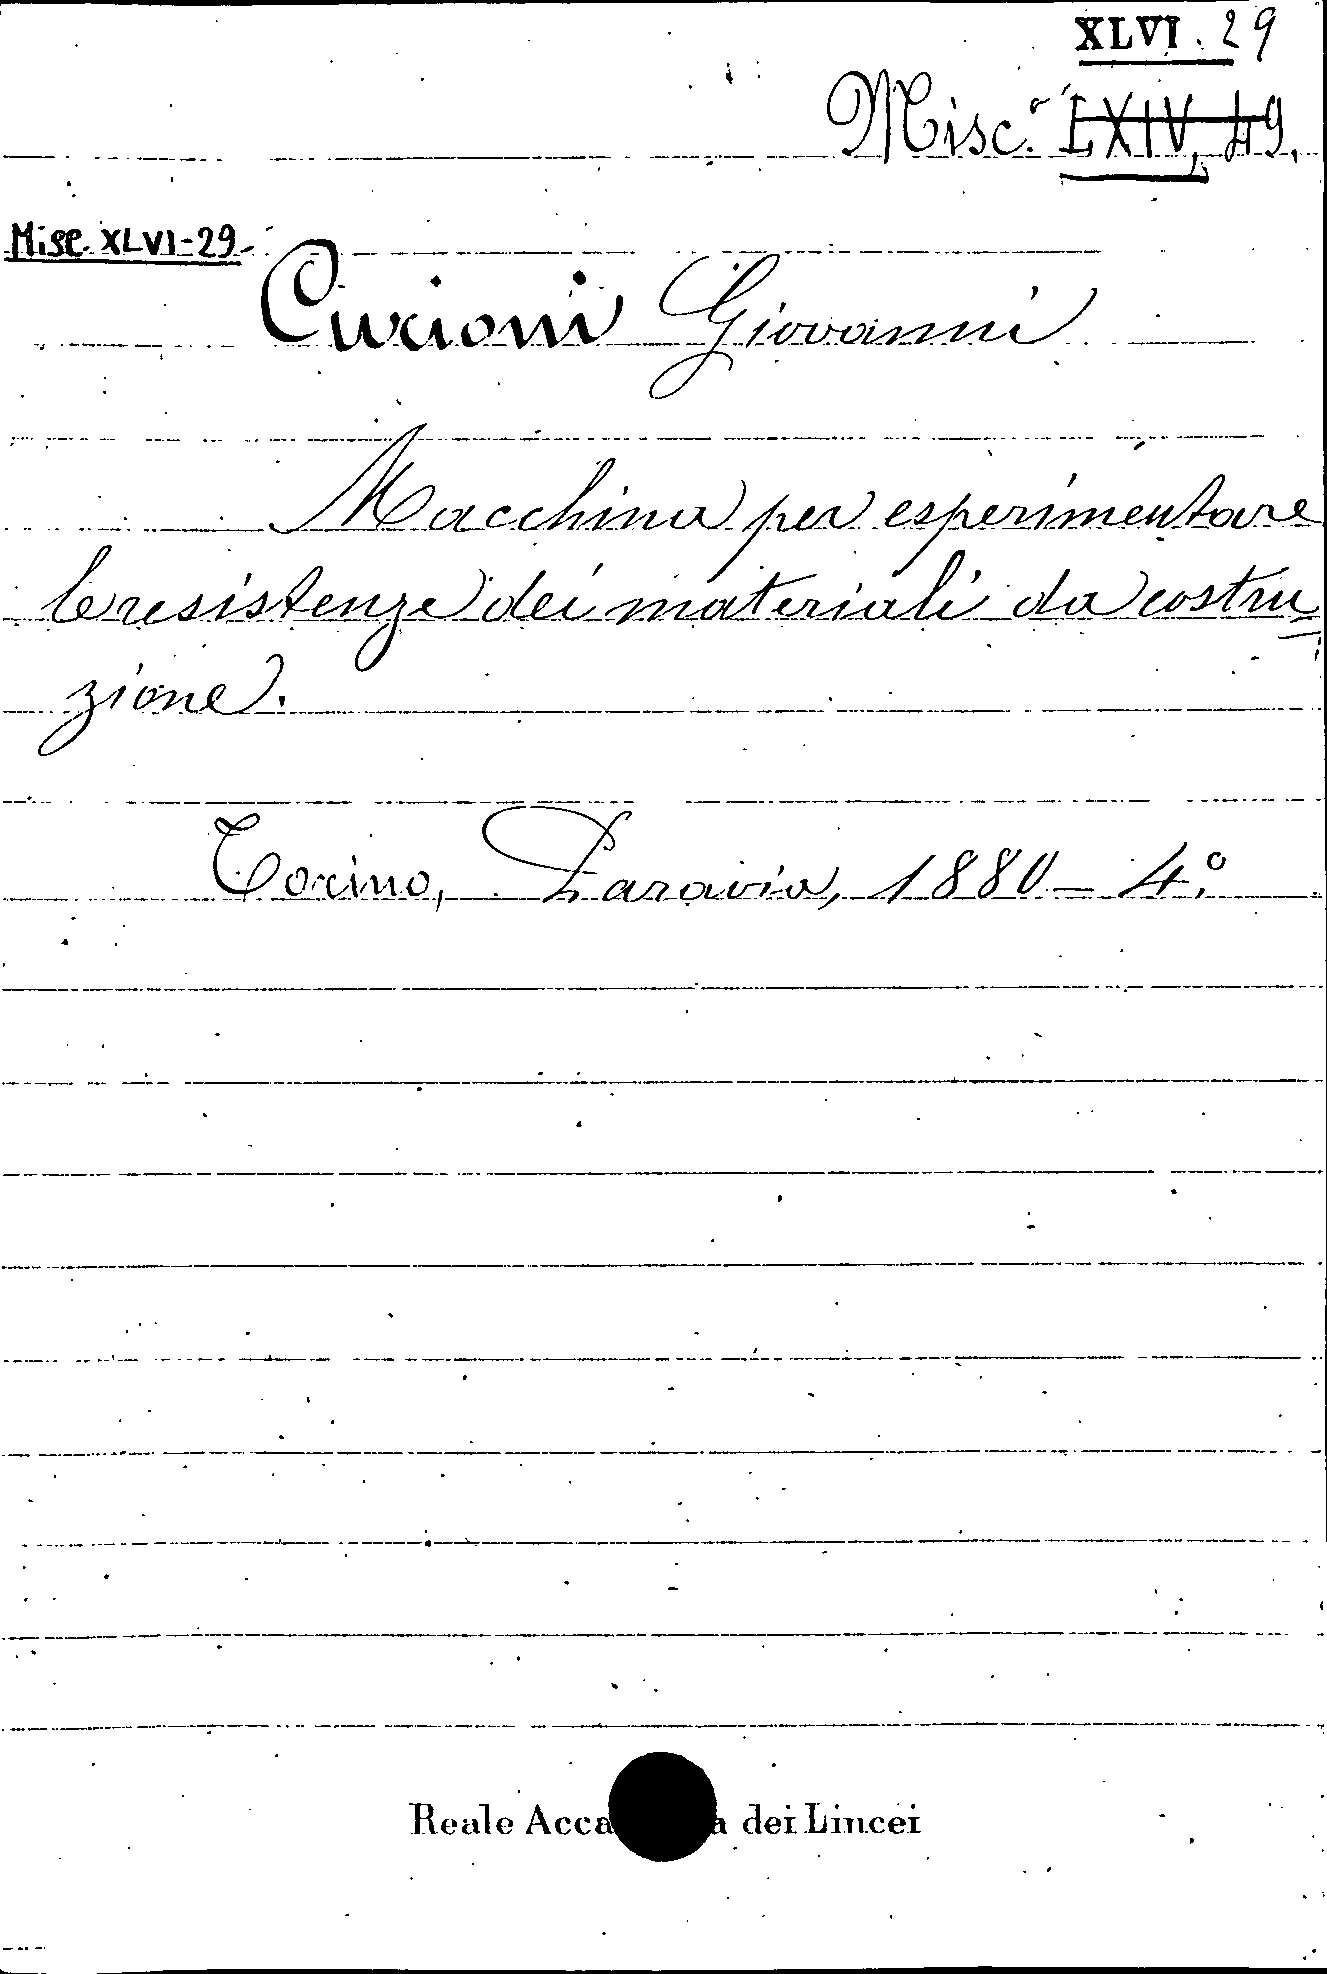 XLVI. 29
Misc.ª LXIV, 49.
Misc. XLVI-29-
Curioni Giovanni
Macchina per esperimentare
le resistenze dei materiali da costru=
zione.
Torino, Paravia, 1880 - 4.º
Reale Acca a dei Lincei